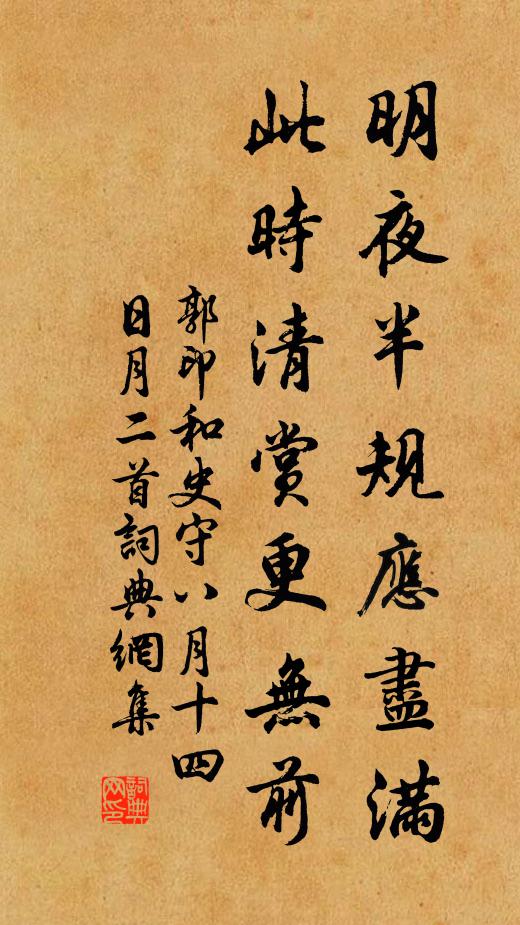 明夜半規應盡滿
此時清賞更無前
郭印和史守八月十四
日月二首詞典網集
詞典网印